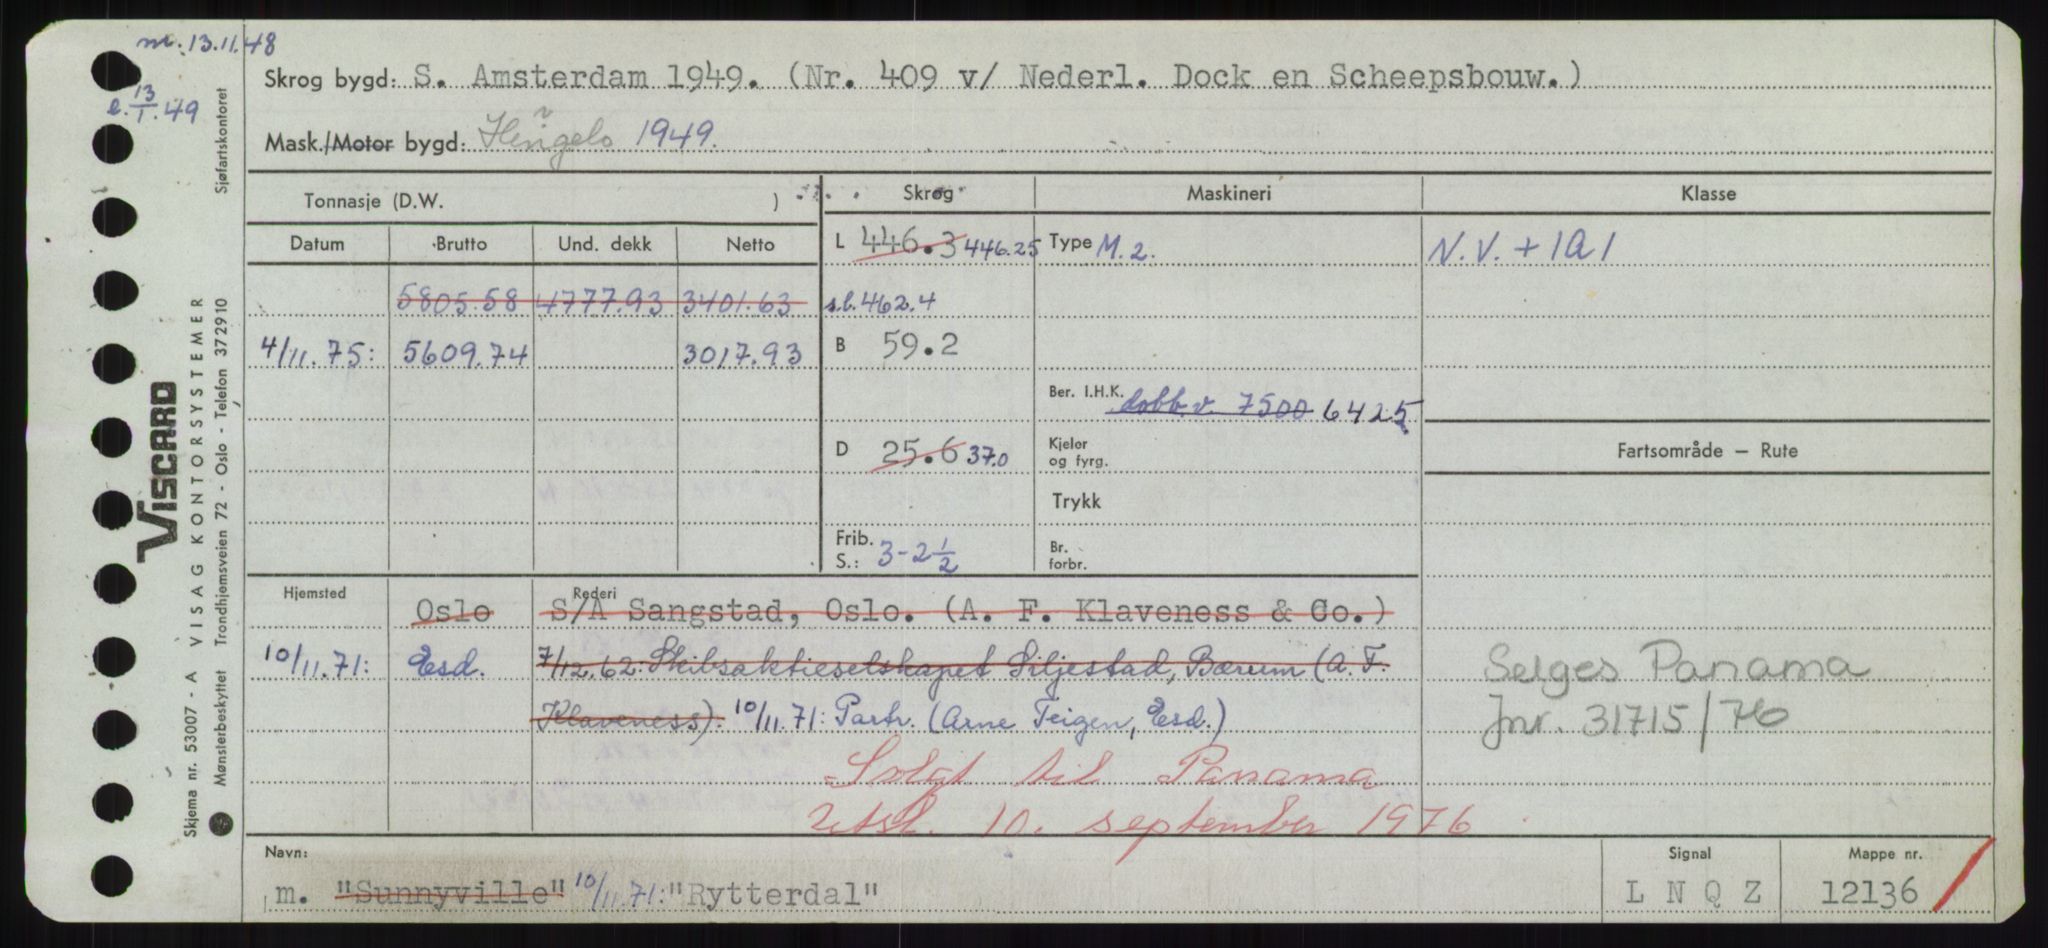 m. 13.11.48
e. 13/1. 49
Skrog bygd: S. Amsterdam 1949. (Nr. 409 v/ Nederl. Dock en Scheepsbouw.)
Mask./Motor bygd: Hengelo 1949.
Tonnasje (D.W. )
Skrog
Maskineri
Klasse
Datum Brutto Und. dekk Netto
L 446.3 446.25
Type M. 2.
N.V. + 1A1
5805.58 4777.93 3401.63
s.l. 462.4
4/11. 75: 5609.74 3017.93
B 59.2
Ber. I.H.K. dobb.v. 7500 6425
D 25.6 37.0
Kjeler og fyrg.
Fartsområde — Rute
Trykk
Frib. S.: 3-2 1/2
Br. forbr.
Hjemsted Oslo
Rederi
S/A Sangstad, Oslo. (A. F. Klaveness & Co.)
10/11. 71: Esd. 7/12. 62: Skibsaktieselskapet Siljestad, Bærum (A. F.
Klaveness). 10/11. 71: Partr. (Arne Teigen, Esd.)
Selges Panama
Jnr. 31715/76
Solgt til Panama
Utsl. 10. september 1976
Navn:
m. "Sunnyville" 10/11. 71: "Rytterdal"
Signal
L N Q Z
Mappe nr.
12136
Sjøfartskontoret
VISCARD
VISAG KONTORSYSTEMER
Trondhjemsveien 72 - Oslo - Telefon 372910
Skjema nr. 53007 - A
Mønsterbeskyttet